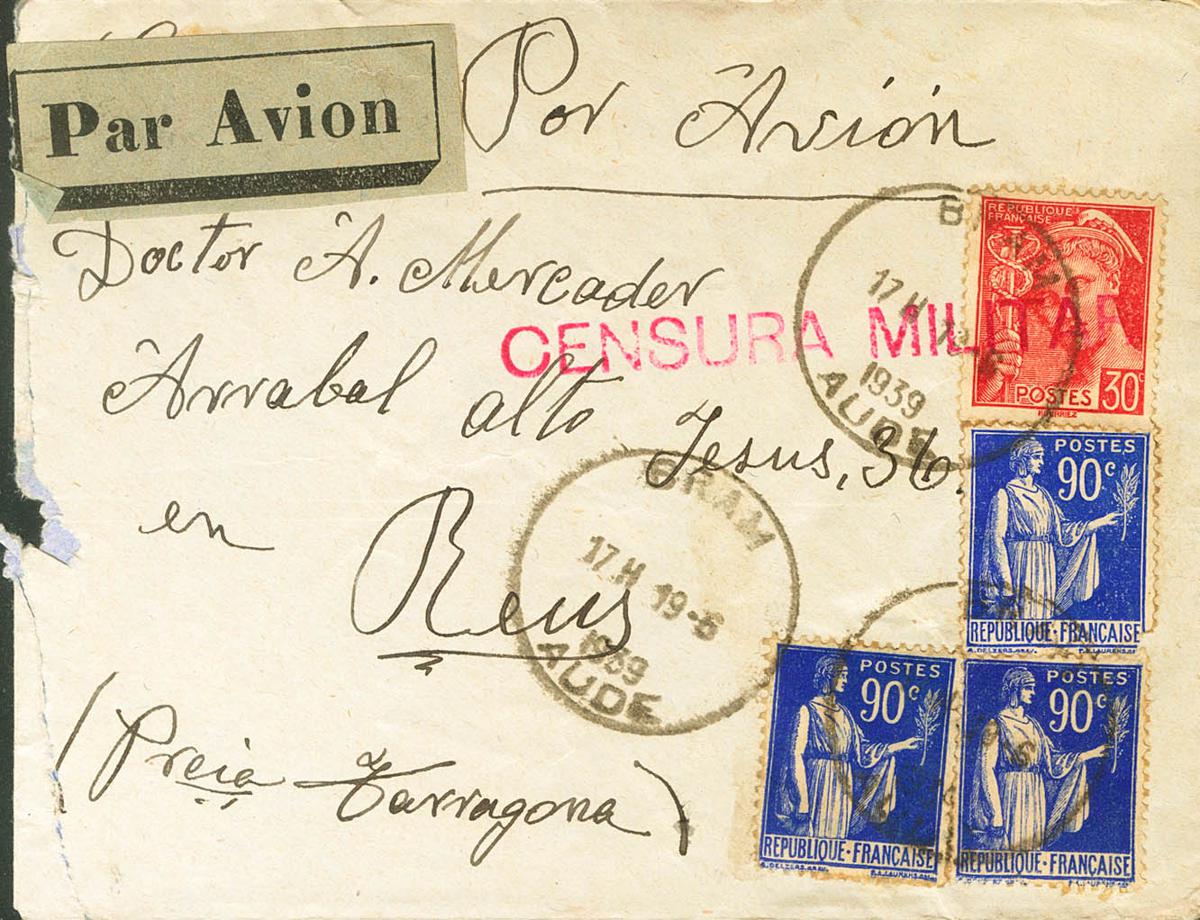 Par Avion
Por Avión
Doctor A. Mercader
CENSURA MILITAR
Arrabal alto Jesus, 36.
en Reus
(Preia Tarragona)
BRAM
17 H 19-6
1939
AUDE
BRAM
17 H 19-6
1939
AUDE
REPUBLIQUE
FRANÇAISE
POSTES 30c
POSTES
90c
REPUBLIQUE·FRANÇAISE
POSTES
90c
REPUBLIQUE·FRANÇAISE
POSTES
90c
REPUBLIQUE·FRANÇAISE